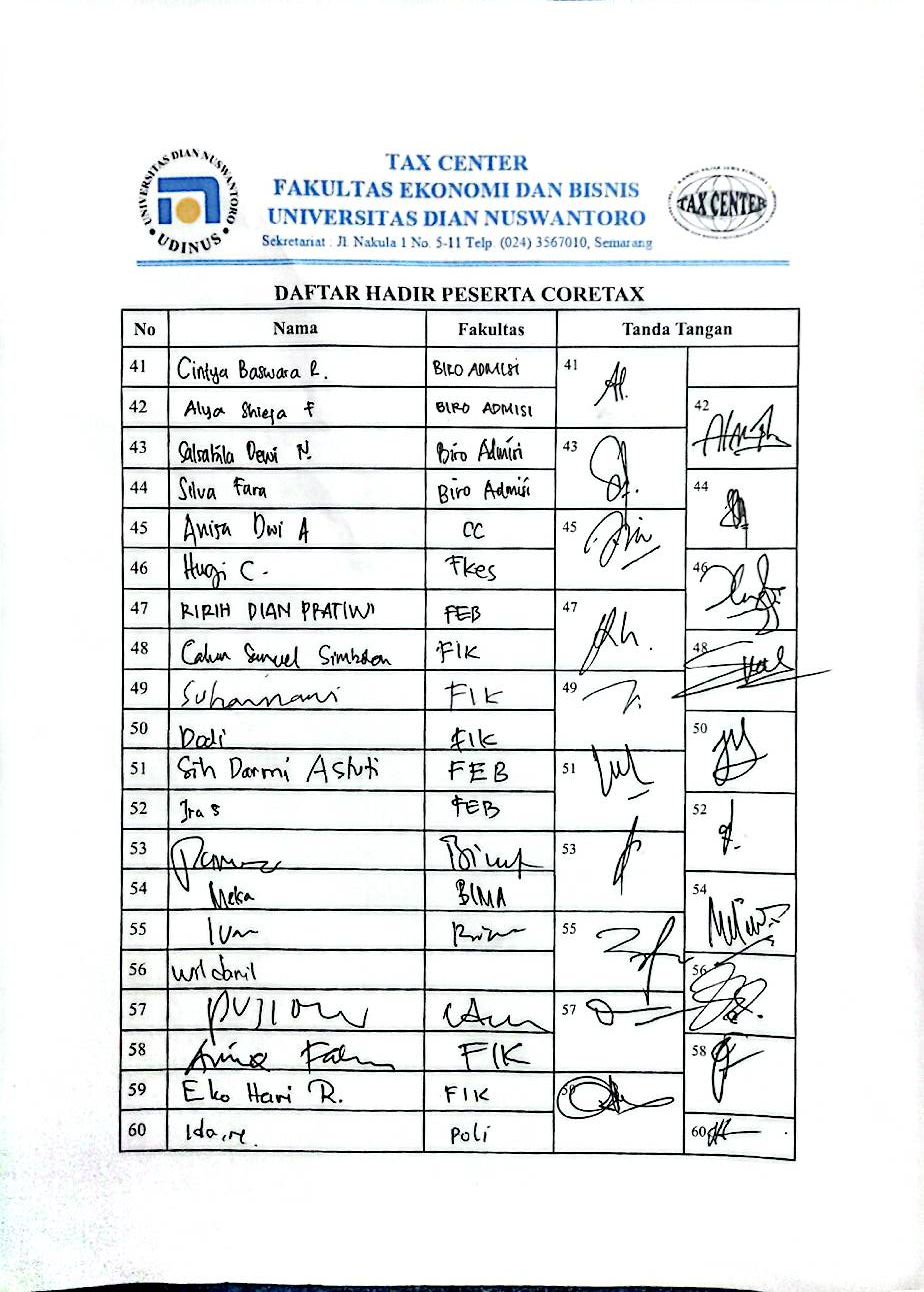 UNIVERSITAS DIAN NUSWANTORO
UDINUS
TAX CENTER
FAKULTAS EKONOMI DAN BISNIS
UNIVERSITAS DIAN NUSWANTORO
Sekretariat : Jl. Nakula 1 No. 5-11 Telp. (024) 3567010, Semarang
TAX CENTER
DAFTAR HADIR PESERTA CORETAX
No Nama Fakultas Tanda Tangan
41 Cintya Baswara R. BIRO ADMISI 41
42 Alya Shieja F BIRO ADMISI 42
43 Salsabila Dewi N. Biro Admisi 43
44 Silva Fara Biro Admisi 44
45 Anisa Dwi A CC 45
46 Hugi C. Fkes 46
47 RIRIH DIAN PRATIWI FEB 47
48 Simbolon FIK 48
49 Suharnawi FIK 49
50 Dodi FIK 50
51 Sih Darmi Astuti FEB 51
52 Ira S FEB 52
53 53
54 Meka BIMA 54
55 Ivan 55
56 Wildanil 56
57 PUJIONO 57
58 FIK 58
59 Eko Hari R. FIK 59
60 Poli 60